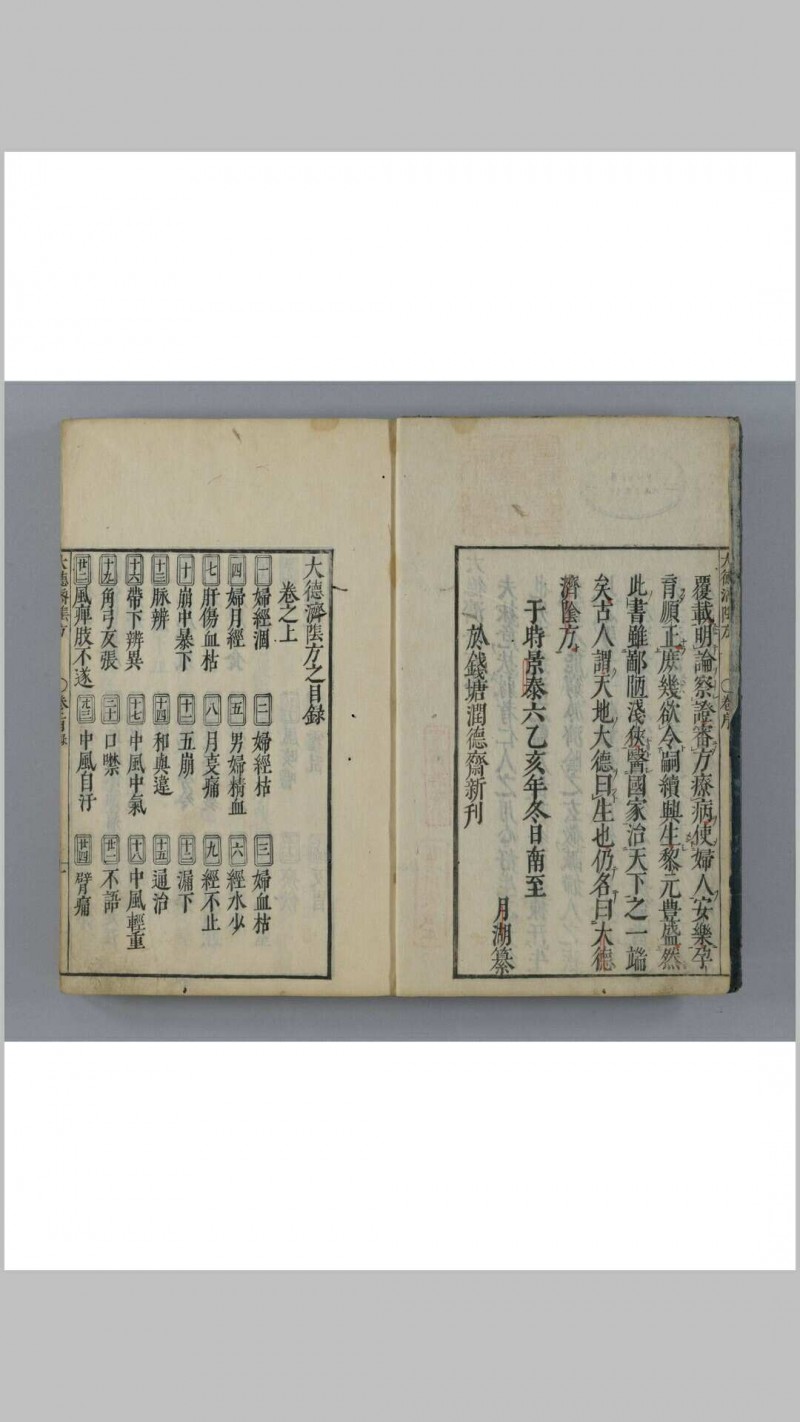 大德濟陰方 〇卷序
覆載明論察證審方療病使婦人安樂孕
育順正庶幾欲令嗣續興生黎元豊盛然
此書雖鄙陋淺狹醫國家治天下之一端
矣古人謂天地大德曰生也仍名曰大德
濟陰方
于時景泰六乙亥年冬日南至
月湖纂
於錢塘潤德齋新刊
大德濟陰方之目録
卷之上
一 婦經涸 二 婦經枯 三 婦血枯
四 婦月經 五 男婦精血 六 經水少
七 肝傷血枯 八 月支痛 九 經不止
十 崩中暴下 十一 五崩 十二 漏下
十三 脉辨 十四 和與違 十五 通治
十六 帶下辨異 十七 中風中氣 十八 中風輕重
十九 角弓反張 二十 口噤 廿一 不語
廿二 風痺肢不遂 廿三 中風自汗 廿四 臂痛
大德濟陰方